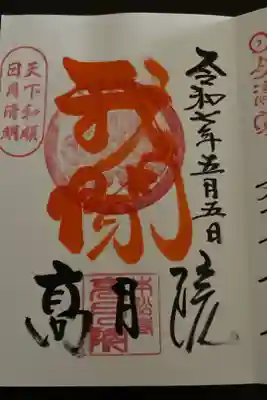 令和七年五月五日
我聞
高月院
天下和順
日月清明
本松山
高月院